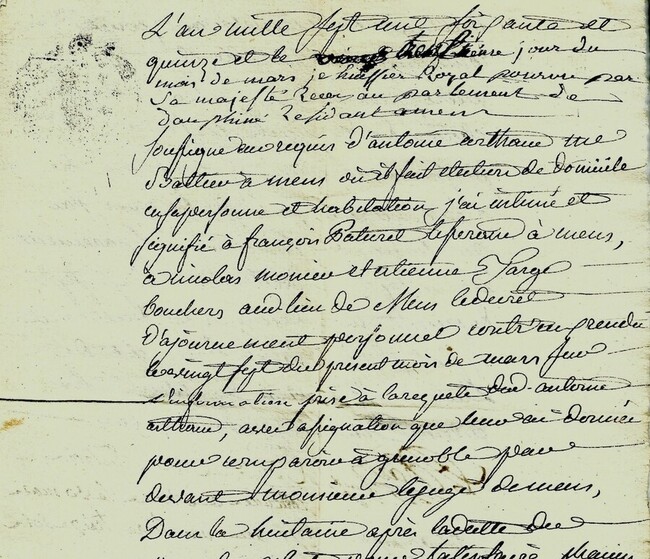 L'an mille sept cent soixante et
quinze et le trentieme jour du
mois de mars je huissier Royal pourvu par
Sa majesté Receu au parlement de
dauphiné Residant a mens
Soussigné au requis d'antoine
a mens ou il fait election de domicile
en sa personne et habitation, j'ai intimé et
signifié à françois Baturel le père à mens,
à nicolas monier et etienne Farge
bouchers aud lieu de Mens le decret
D'ajournement personnel contr'eux rendu
le vingt sept du present mois de mars sur
L'information prise à la requete dud antoine
, avec assignation que leur ai donnée
pour comparoir à grenoble par
devant monsieur le juge de mens,
Dans la huitaine après la datte du